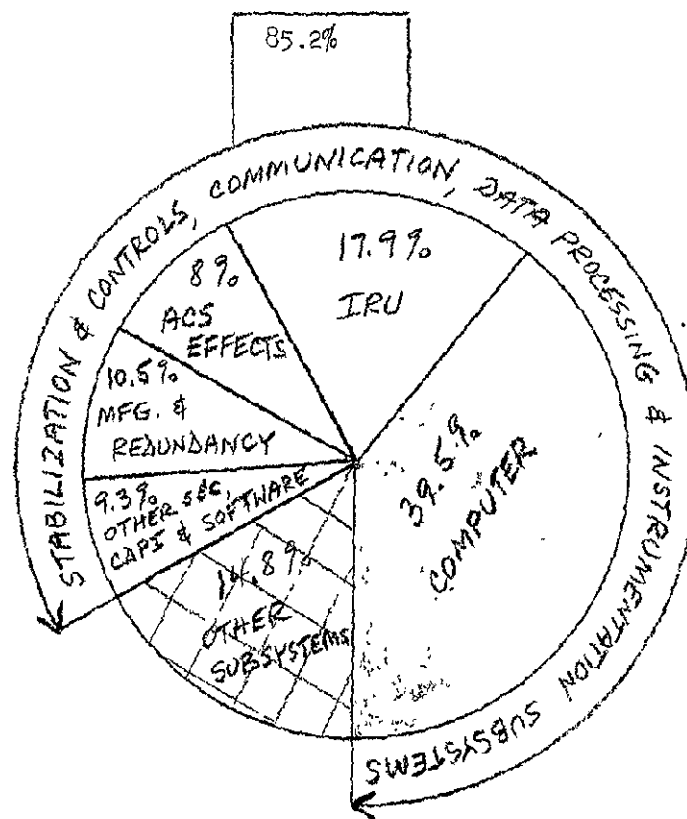 85.2%
STABILIZATION & CONTROLS, COMMUNICATION, DATA PROCESSING & INSTRUMENTATION SUBSYSTEMS
17.9%
IRU
8%
ACS
EFFECTS
10.5%
MFG. &
REDUNDANCY
9.3%
OTHER S&C,
CAPI & SOFTWARE
14.8%
OTHER
SUBSYSTEMS
39.5%
COMPUTER